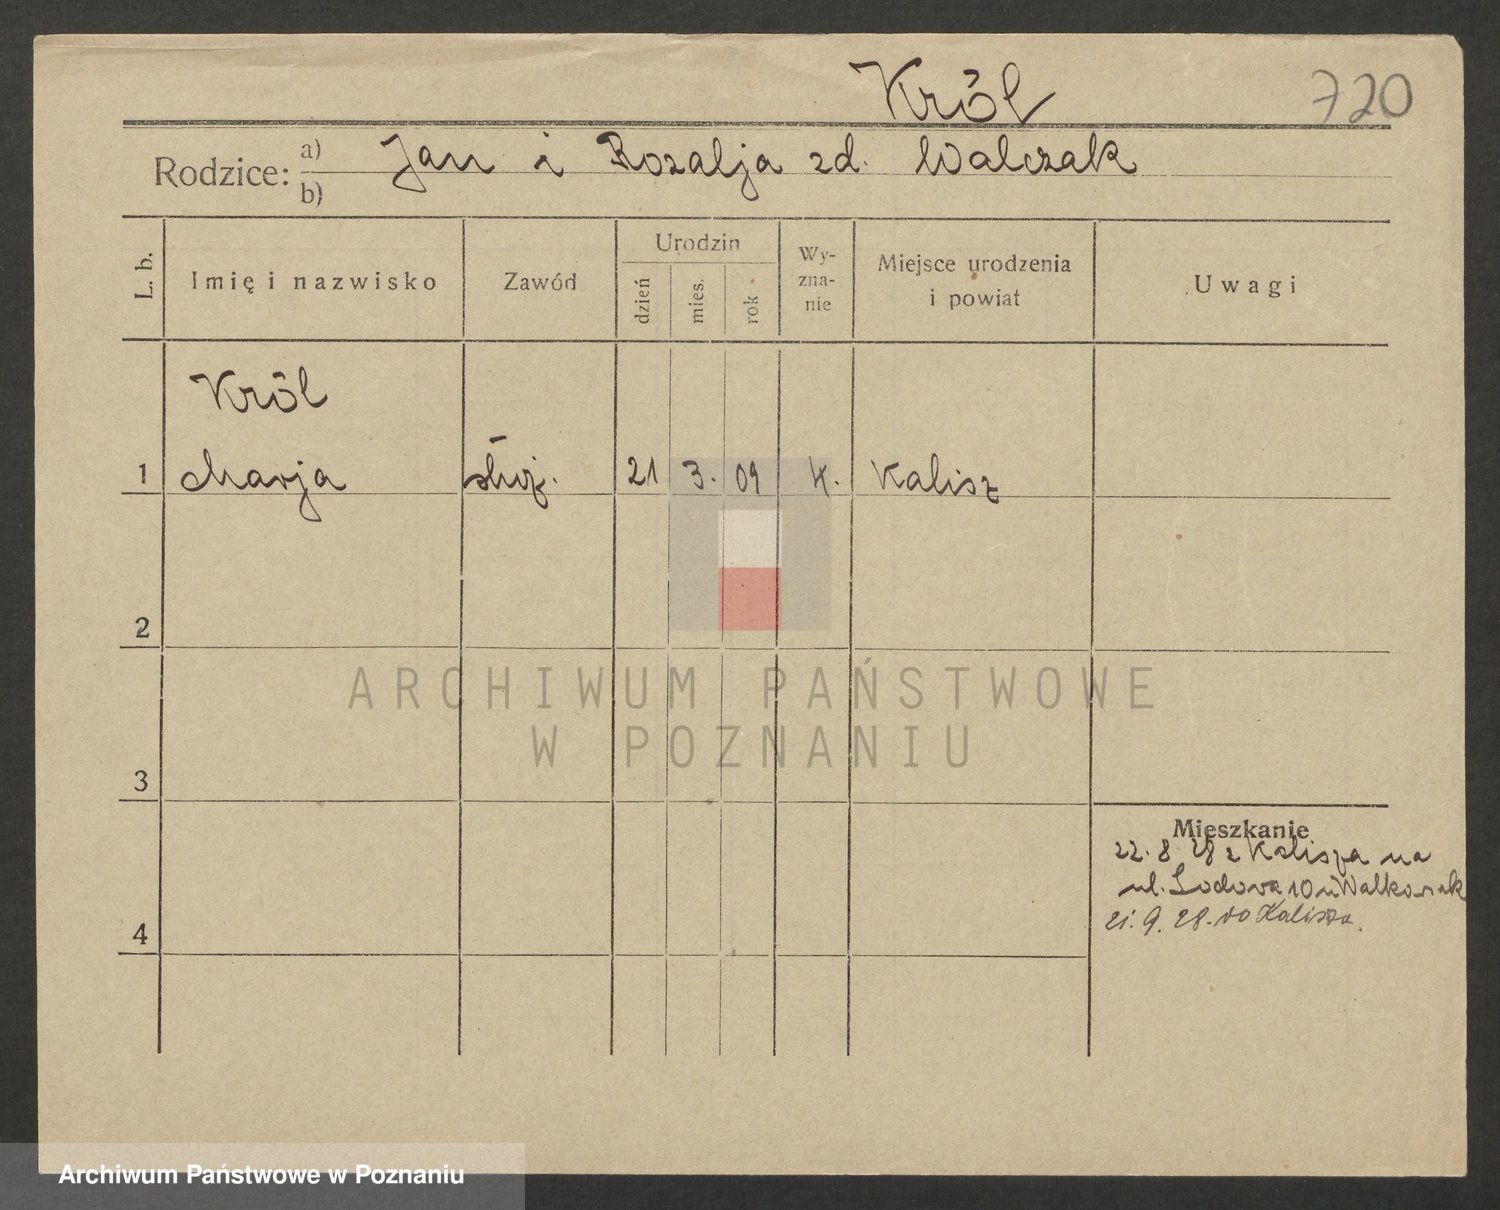 Król
720
Rodzice: a) Jan i Rozalja zd. Walczak
b)
L. b.
Imię i nazwisko
Zawód
Urodzin
dzień
mies.
rok
Wy-
zna-
nie
Miejsce urodzenia
i powiat
Uwagi
Król
1 Marja służ. 21 3. 09 k. Kalisz
2
ARCHIWUM PAŃSTWOWE
W POZNANIU
3
Mieszkanie
22. 8 28 z Kalisza na
ul. Lodową 10 u
21. 9. 28. do Kalisza.
4
Archiwum Państwowe w Poznaniu